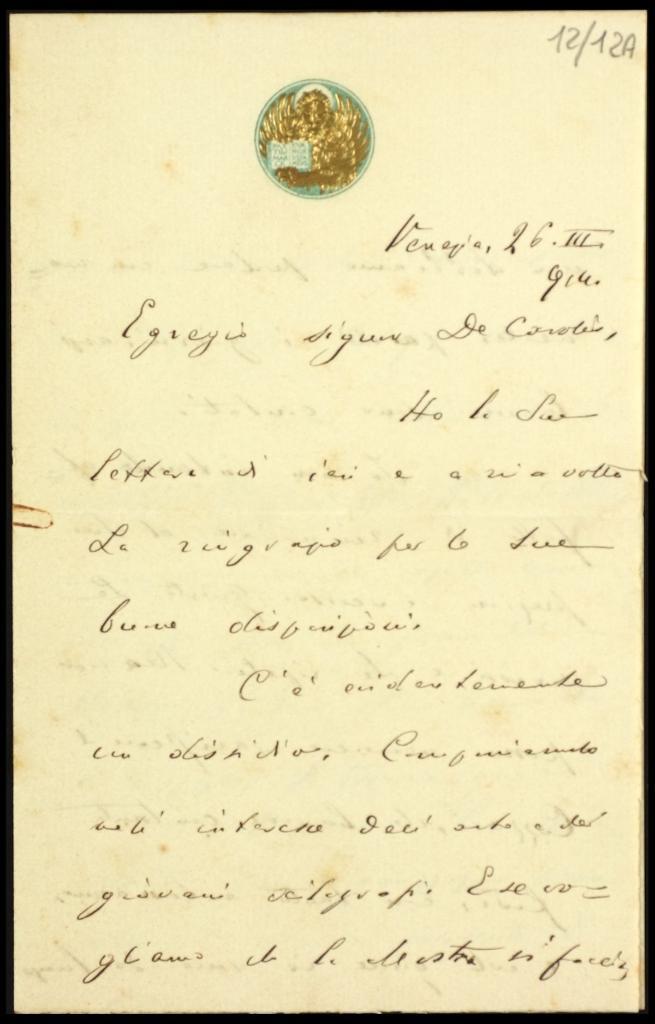 12/12A
Venezia, 26. III.
914.
Egregio signor De Carolis,
Ho la Sua
lettera di ieri e a mia volta
La ringrazio per le Sue
buone disposizioni.
C'è evidentemente
un dissidio. Componiamolo
nell'interesse dell'arte e dei
giovani xilografi. E se vo-
gliamo che la Mostra si faccia